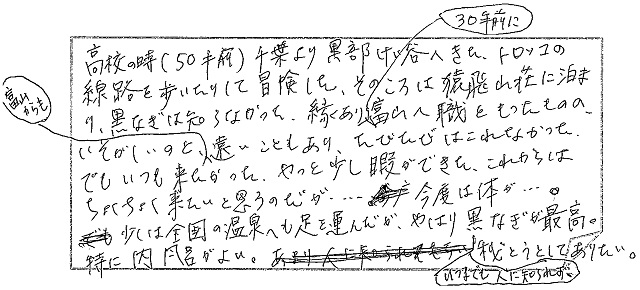 30年前に
高校の時(50年前)千葉より黒部けい谷へきた、トロッコの
線路を歩いたりして冒険した、そのころは猿飛山荘に泊ま
り、黒なぎは知らなかった。縁あり富山へ職をもったものの、
富山からも
いそがしいのと、遠いこともあり、たびたびはこれなかった。
でもいつも来たかった。やっと少し暇ができた、これからは
ちょくちょく来たいと思うのだが……今度は体が…。
少しは全国の温泉へも足を運んだが、やはり黒なぎが最高。
特に内風呂がよい。秘とうとしてありたい。
いつまでも人に知られず、